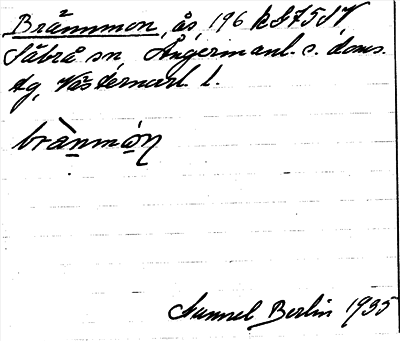 Brännmon, ås 196 kS75SV
Säbrå sn, Ångermanl. s. doms.
tg, Västernorrl. l.
brànmón
Hummel Berlin 1935